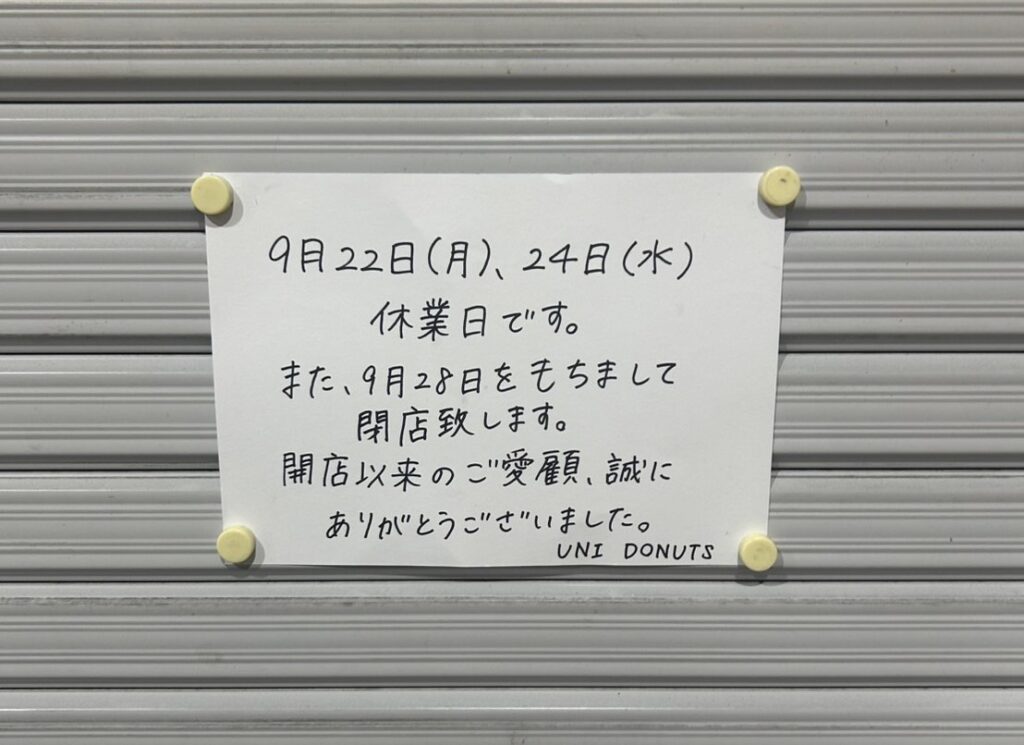 9月22日(月)、24日(水)
休業日です。
また、9月28日をもちまして
閉店致します。
開店以来のご愛顧、誠に
ありがとうございました。
UNI DONUTS